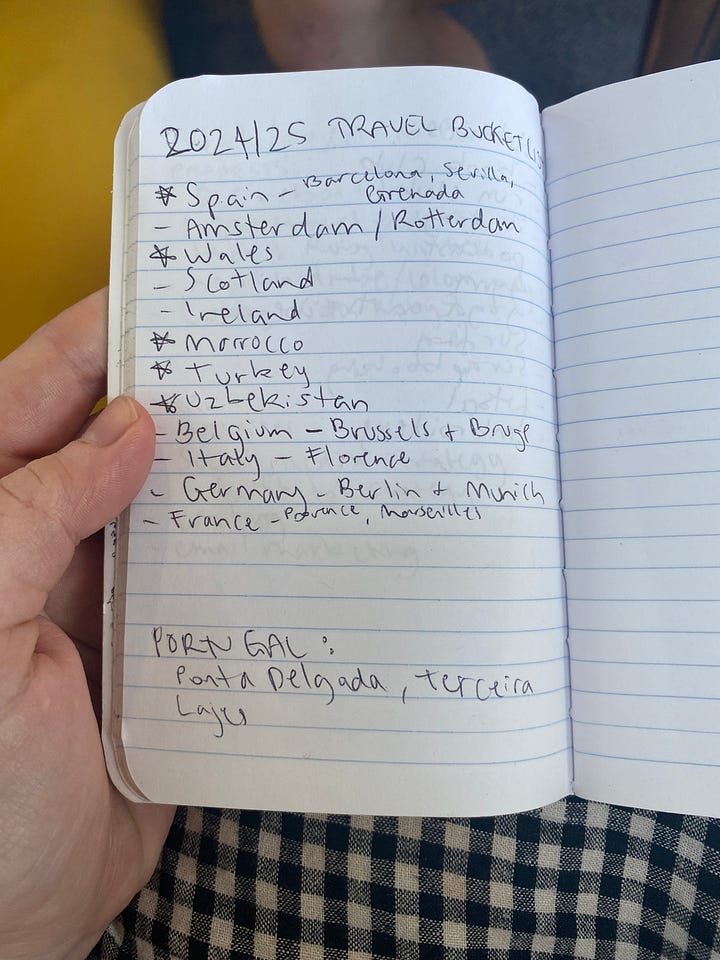 2024/25 TRAVEL BUCKET LIS
* Spain - Barcelona, Sevilla,
Grenada
- Amsterdam / Rotterdam
* Wales
- Scotland
- Ireland
* Morrocco
* Turkey
* Uzbekistan
- Belgium - Brussels + Bruge
- Italy - Florence
- Germany - Berlin + Munich
- France - Provence, Marseilles
PORTUGAL :
Ponta Delgada, Terceira
Lajes